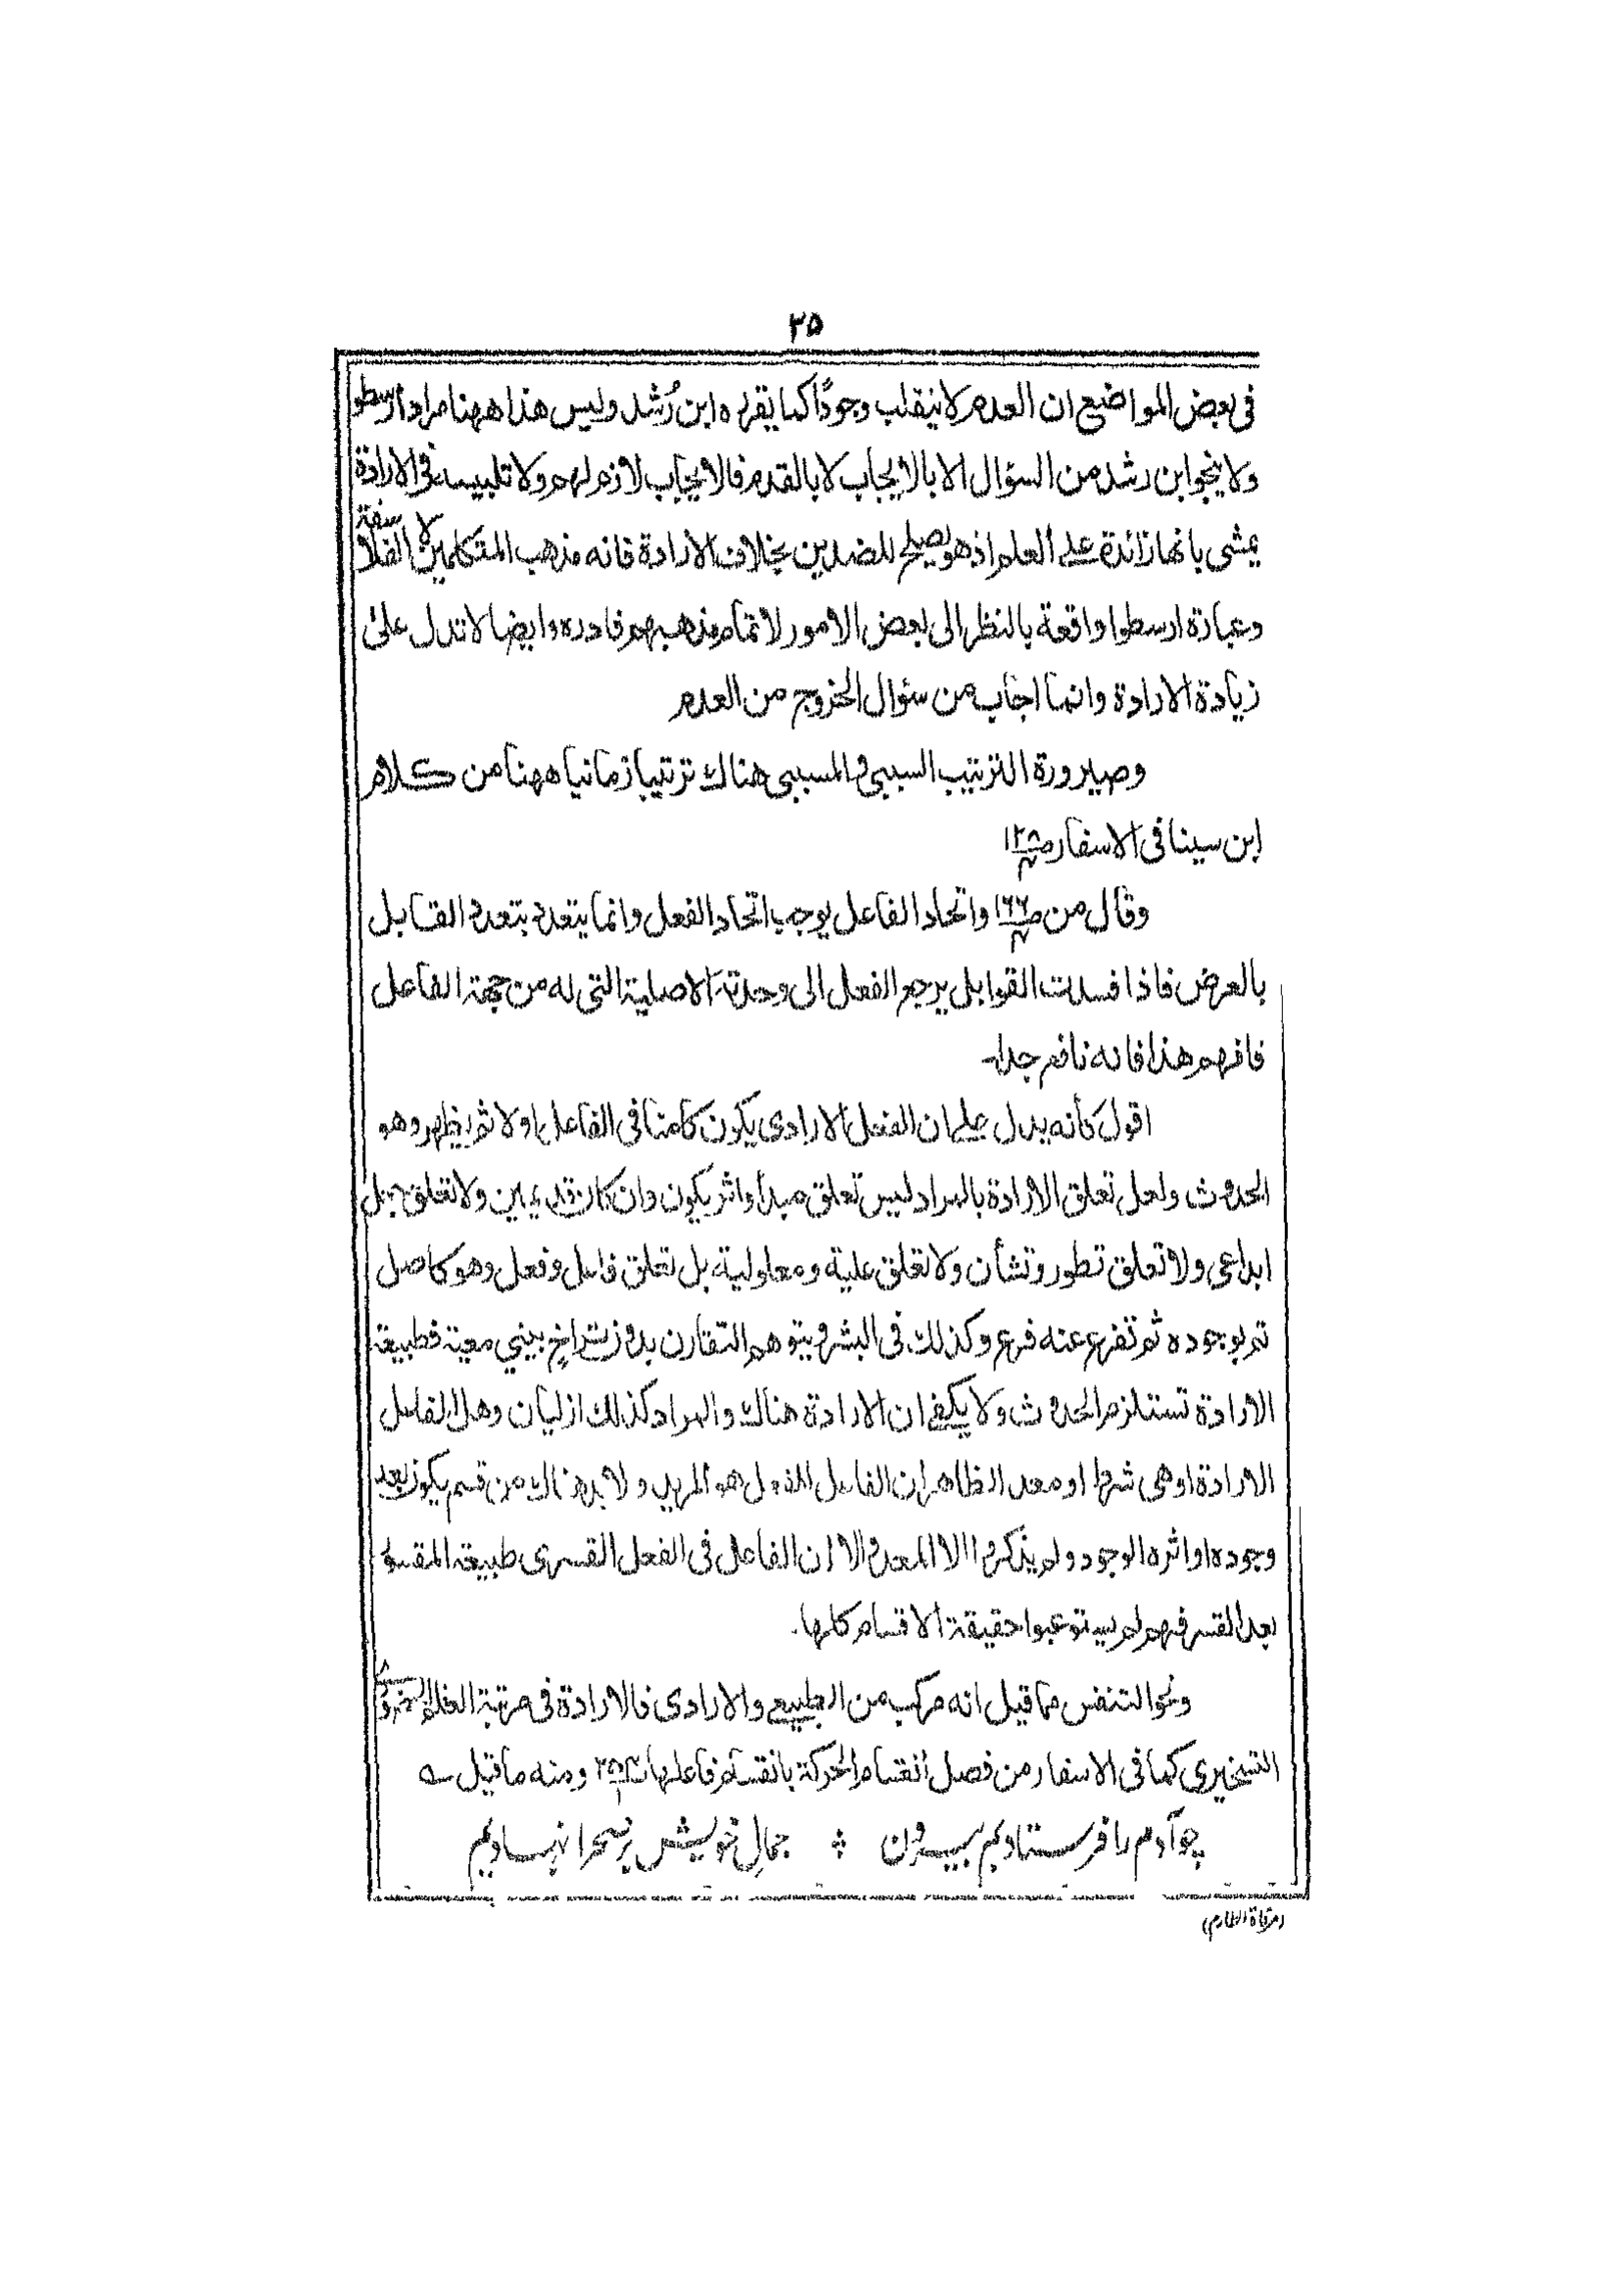 ٢٥
فى بعض المواضع ان العدم لا ينقلب وجودًا كما يقرره ابن رُشد وليس هذا ههنا مراد ارسطو
ولا ينجو ابن رشد من السؤال الا بالايجاب لا بالقدم فالايجاب لازم لهم ولا تلبيسه فى الارادة
يمشى بانها زائدة على العلم اذ هو يصلح للضدين بخلاف الارادة فانه مذهب المتكلمين لا الفلاسفة
وعبارة ارسطوا واقعة بالنظر الى بعض الامور لا تمام مذهبهم فادره وايضا لا تدل على
زيادة الارادة وانما اجاب من سؤال الخروج من العدم
وصيرورة الترتيب السببى والمسببى هناك ترتيبا زمانيا ههنا من كلام
ابن سينا فى الاسفار ص
وقال من ص ١٦٦ واتحاد الفاعل يوجب اتحاد الفعل وانما يتعدد بتعدد القابل
بالعرض فاذا فسدت القوابل يرجع الفعل الى وحدته الاصلية التى له من جهة الفاعل
فافهم هذا فانه نافع جدا۔
اقول كأنه يدل على ان الفعل الارادى يكون كامنا فى الفاعل اولا ثم يظهر وهو
الحدوث ولعل تعلق الارادة بالمراد ليس تعلق مبدأ واثر يكون وان كان قديمين ولا تعلق
ابداعى ولا تعلق تطور وتشأن ولا تعلق علية ومعلولية بل تعلق فاعل وفعل وهو كاصل
تم بوجوده ثم تفرع عنه فرع وكذلك فى البشر ويتوهم التقارن بدون تراخٍ بينى معية فطبيعة
الارادة تستلزم الحدوث ولا يكفى ان الارادة هناك والمراد كذلك ازليان وهل الفاعل
الارادة اوهى شرط او معد الظاهر ان الفاعل هو المريد ولا بد هناك من قسم يكون بعد
وجوده او اثره الوجود ولم يذكروا الا المعد والا ان الفاعل فى الفعل القسرى طبيعة المقسور
بعد القسر فهم لم يستوعبوا حقيقة الاقسام كلها.
ونحو التنفس مما قيل انه مركب من الطبيعى والارادى فالارادة فى مرتبة
التسخيرى كما فى الاسفار من فصل انقسام الحركة بانقسام فاعلها ومنه ما قيل ؎
چو آدم را فرستادیم بیرون ؞ جمالِ خویش بر صحرا نہادیم
(مرقاة الطارم)